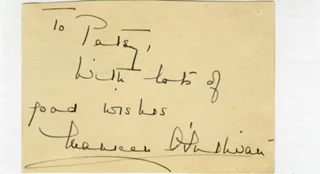 To Patsy,
With lots of
good wishes
Maureen O'Sullivan